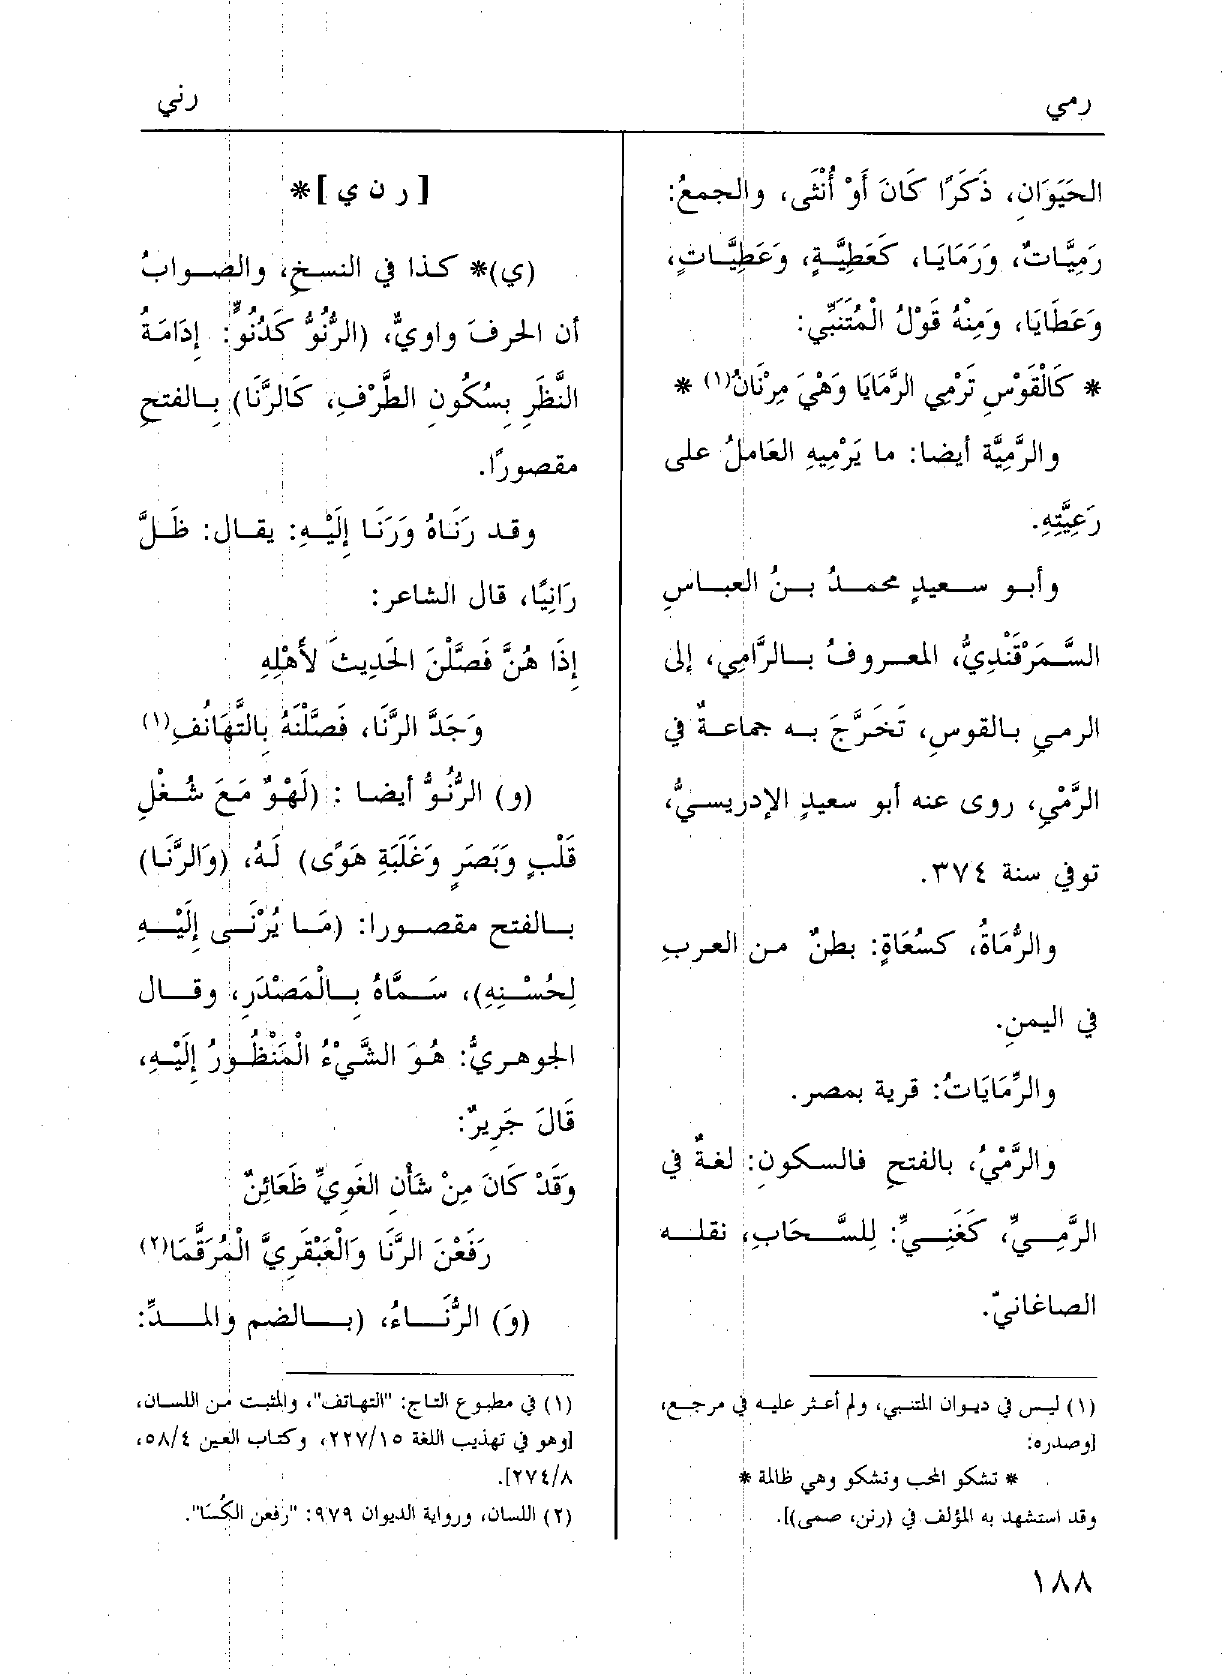 رمي
رني
الحَيَوَانِ، ذَكَرًا كَانَ أَوْ أُنْثَى، والجمعُ:
رَمِيَّاتٌ، وَرَمَايَا، كَعَطِيَّةٍ، وَعَطِيَّاتٍ،
وَعَطَايَا، وَمِنْهُ قَوْلُ الْمُتَنَبِّي:
* كَالْقَوْسِ تَرْمِي الرَّمَايَا وَهْيَ مِرْنَانُ(١) *
والرَّمِيَّة أيضا: ما يَرْمِيهِ العَامِلُ على
رَعِيَّتِهِ.
وأبو سعيدٍ محمدُ بنُ العباسِ
السَّمَرْقَنْدِيُّ، المعروفُ بالرَّامِي، إلى
الرمي بالقوسِ، تَخَرَّجَ به جماعةٌ في
الرَّمْيِ، روى عنه أبو سعيدٍ الإدريسيُّ،
توفي سنة ٣٧٤.
والرُّمَاةُ، كسُعَاةٍ: بطنٌ من العربِ
في اليمنِ.
والرِّمَايَاتُ: قرية بمصر.
والرَّمْيُ، بالفتحِ فالسكونِ: لغةٌ في
الرَّمِيِّ، كَغَنِيٍّ: لِلسَّحَابِ، نقله
الصاغانيّ.
(١) ليس في ديوان المتنبي، ولم أعثر عليه في مرجع،
[وصدره:
* تشكو المحب وتشكو وهي ظالمة *
وقد استشهد به المؤلف في (رنن، صمى)].
[ر ن ي]*
(ي)* كذا في النسخِ، والصوابُ
أن الحرفَ واويٌّ، (الرُّنُوُّ كَدُنُوٍّ: إدَامَةُ
النَّظَرِ بِسُكُونِ الطَّرْفِ، كَالرَّنَا) بالفتحِ
مقصورًا.
وقد رَنَاهُ وَرَنَا إِلَيْهِ: يقال: ظَلَّ
رَانِيًا، قال الشاعر:
إِذَا هُنَّ فَصَّلْنَ الحَدِيثَ لأَهْلِهِ
وَجَدَّ الرَّنَا، فَصَّلْنَهُ بِالتَّهَانُفِ(١)
(و) الرُّنُوُّ أيضا : (لَهْوٌ مَعَ شُغْلِ
قَلْبٍ وَبَصَرٍ وَغَلَبَةِ هَوًى) لَهُ، (وَالرَّنَا)
بالفتح مقصورا: (مَا يُرْنَى إِلَيْهِ
لِحُسْنِهِ)، سَمَّاهُ بِالْمَصْدَرِ، وقال
الجوهريُّ: هُوَ الشَّيْءُ الْمَنْظُورُ إِلَيْهِ،
قَالَ جَرِيرٌ:
وَقَدْ كَانَ مِنْ شَأْنِ الغَوِيِّ ظَعَائِنٌ
رَفَعْنَ الرَّنَا وَالْعَبْقَرِيَّ الْمُرَقَّمَا(٢)
(وَ) الرُّنَاءُ، (بالضم والمدِّ:
(١) في مطبوع التاج: "التهاتف"، والمثبت من اللسان،
[وهو في تهذيب اللغة ٢٢٧/١٥، وكتاب العين ٥٨/٤،
٢٧٤/٨].
(٢) اللسان، ورواية الديوان ٩٧٩: "رفعن الكُسَا".
١٨٨